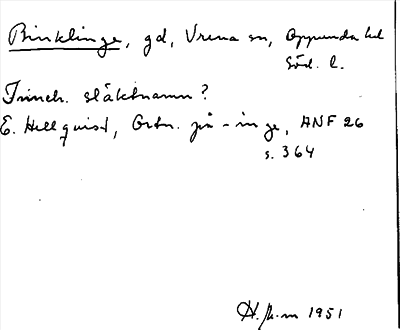 Binklinge, gd, Vrena sn, Oppunda hd
Söd. l.
släktnamn?
E. Hellquist, Ortn. på -inge, ANF 26
s. 364
1951